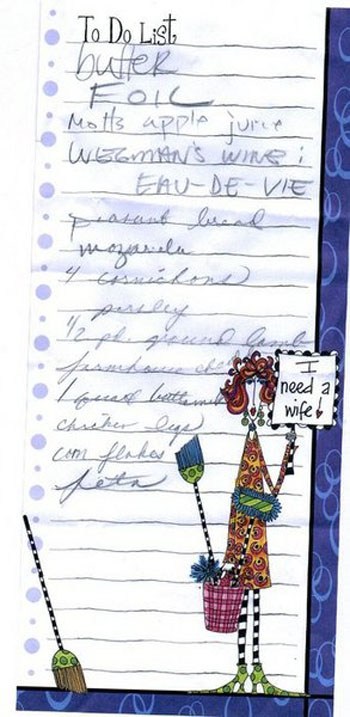 To Do List
butter
FOIL
Motts apple juice
WEGMAN'S WINE:
EAU-DE-VIE
peasant bread
mozarela
4 cornichons
parsley
1/2 pd. ground lamb
farmhouse
1 quart buttermilk
chicken legs
corn flakes
feta
I
need a
wife!